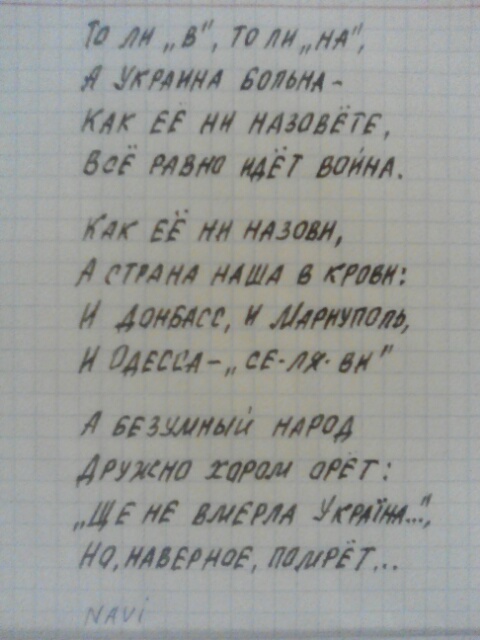 То ли „в", то ли „на",
А Украина больна –
Как её ни назовёте,
Всё равно идёт война.
Как её ни назови,
А страна наша в крови:
И Донбасс, и Мариуполь,
И Одесса – „се-ля-ви"
А безумный народ
Дружно хором орёт:
„Ще не вмерла Україна...",
Но, наверное, помрёт...
NAVi